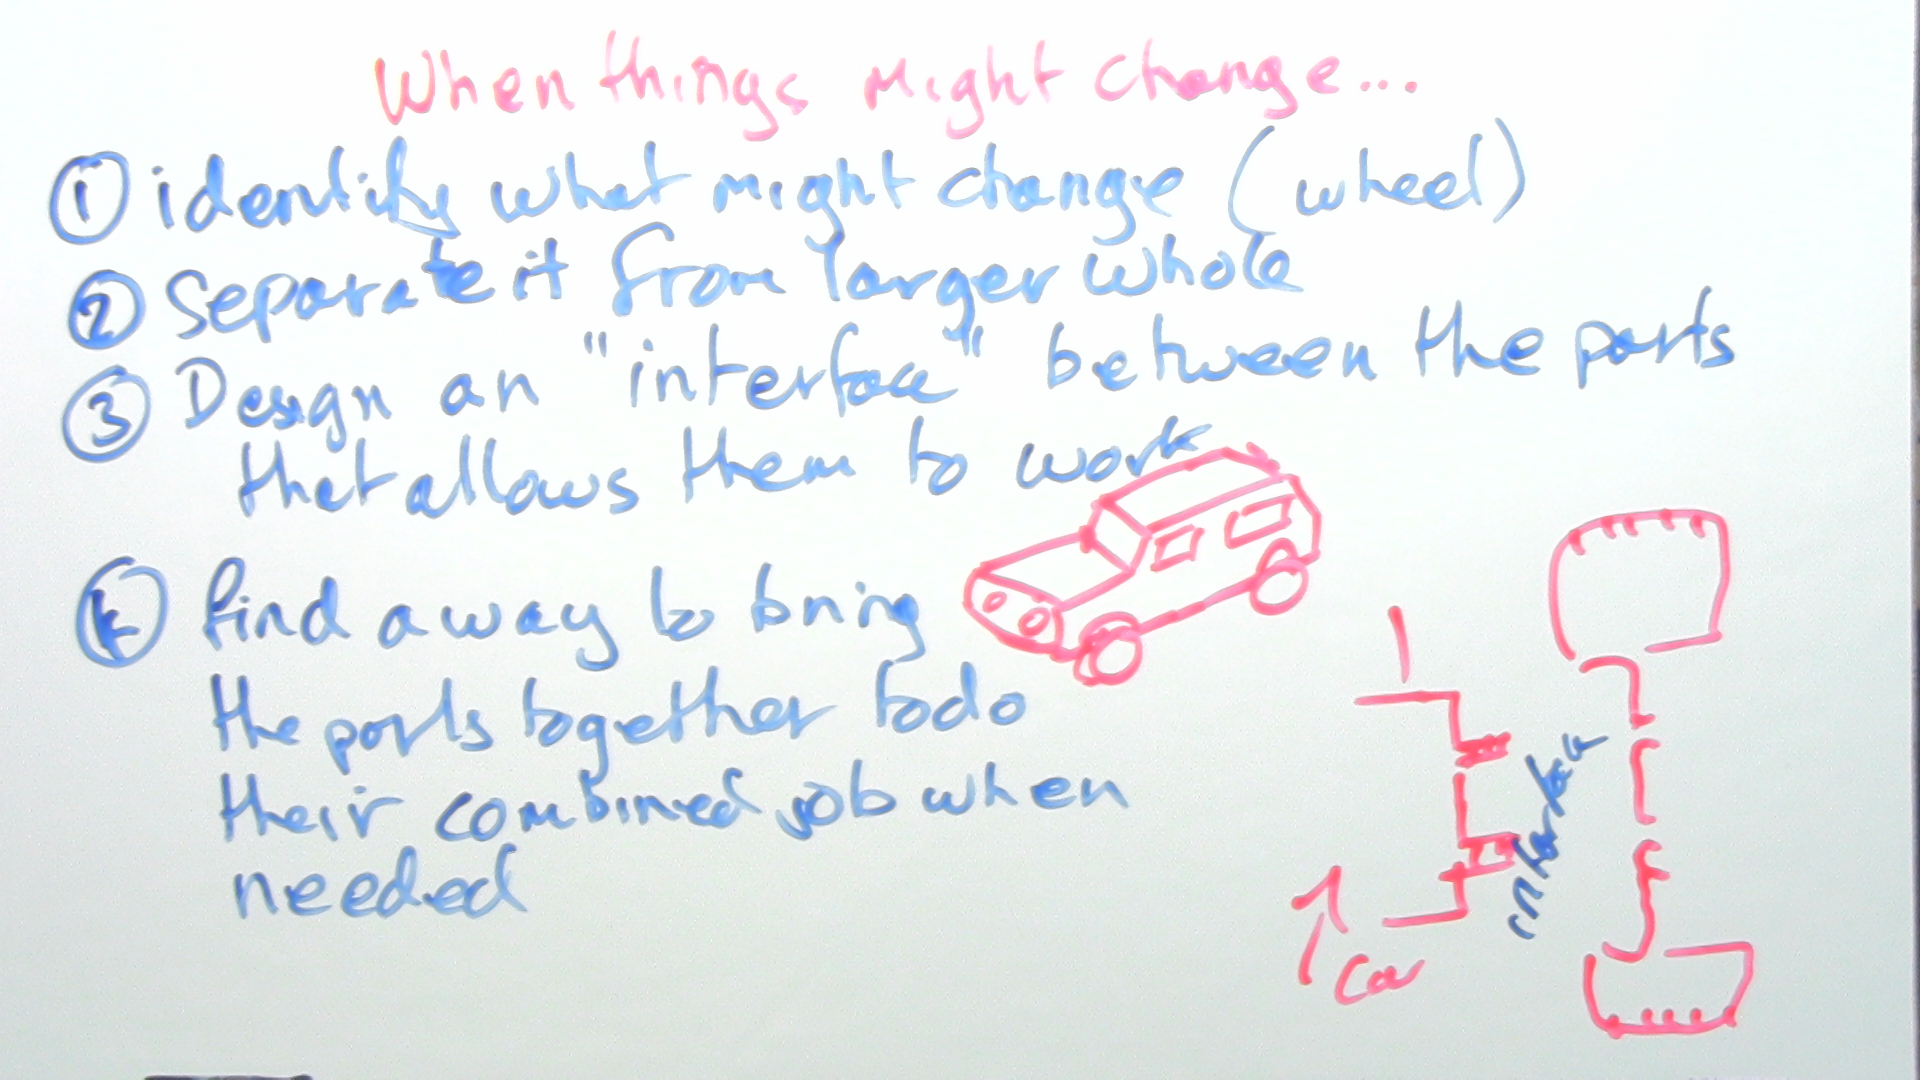 When things Might change...
① identify what might change (wheel)
② Separate it from larger whole
③ Design an "interface" between the parts
that allows them to work
④ find a way to bring
the parts together to do
their combined job when
needed
interface
Car